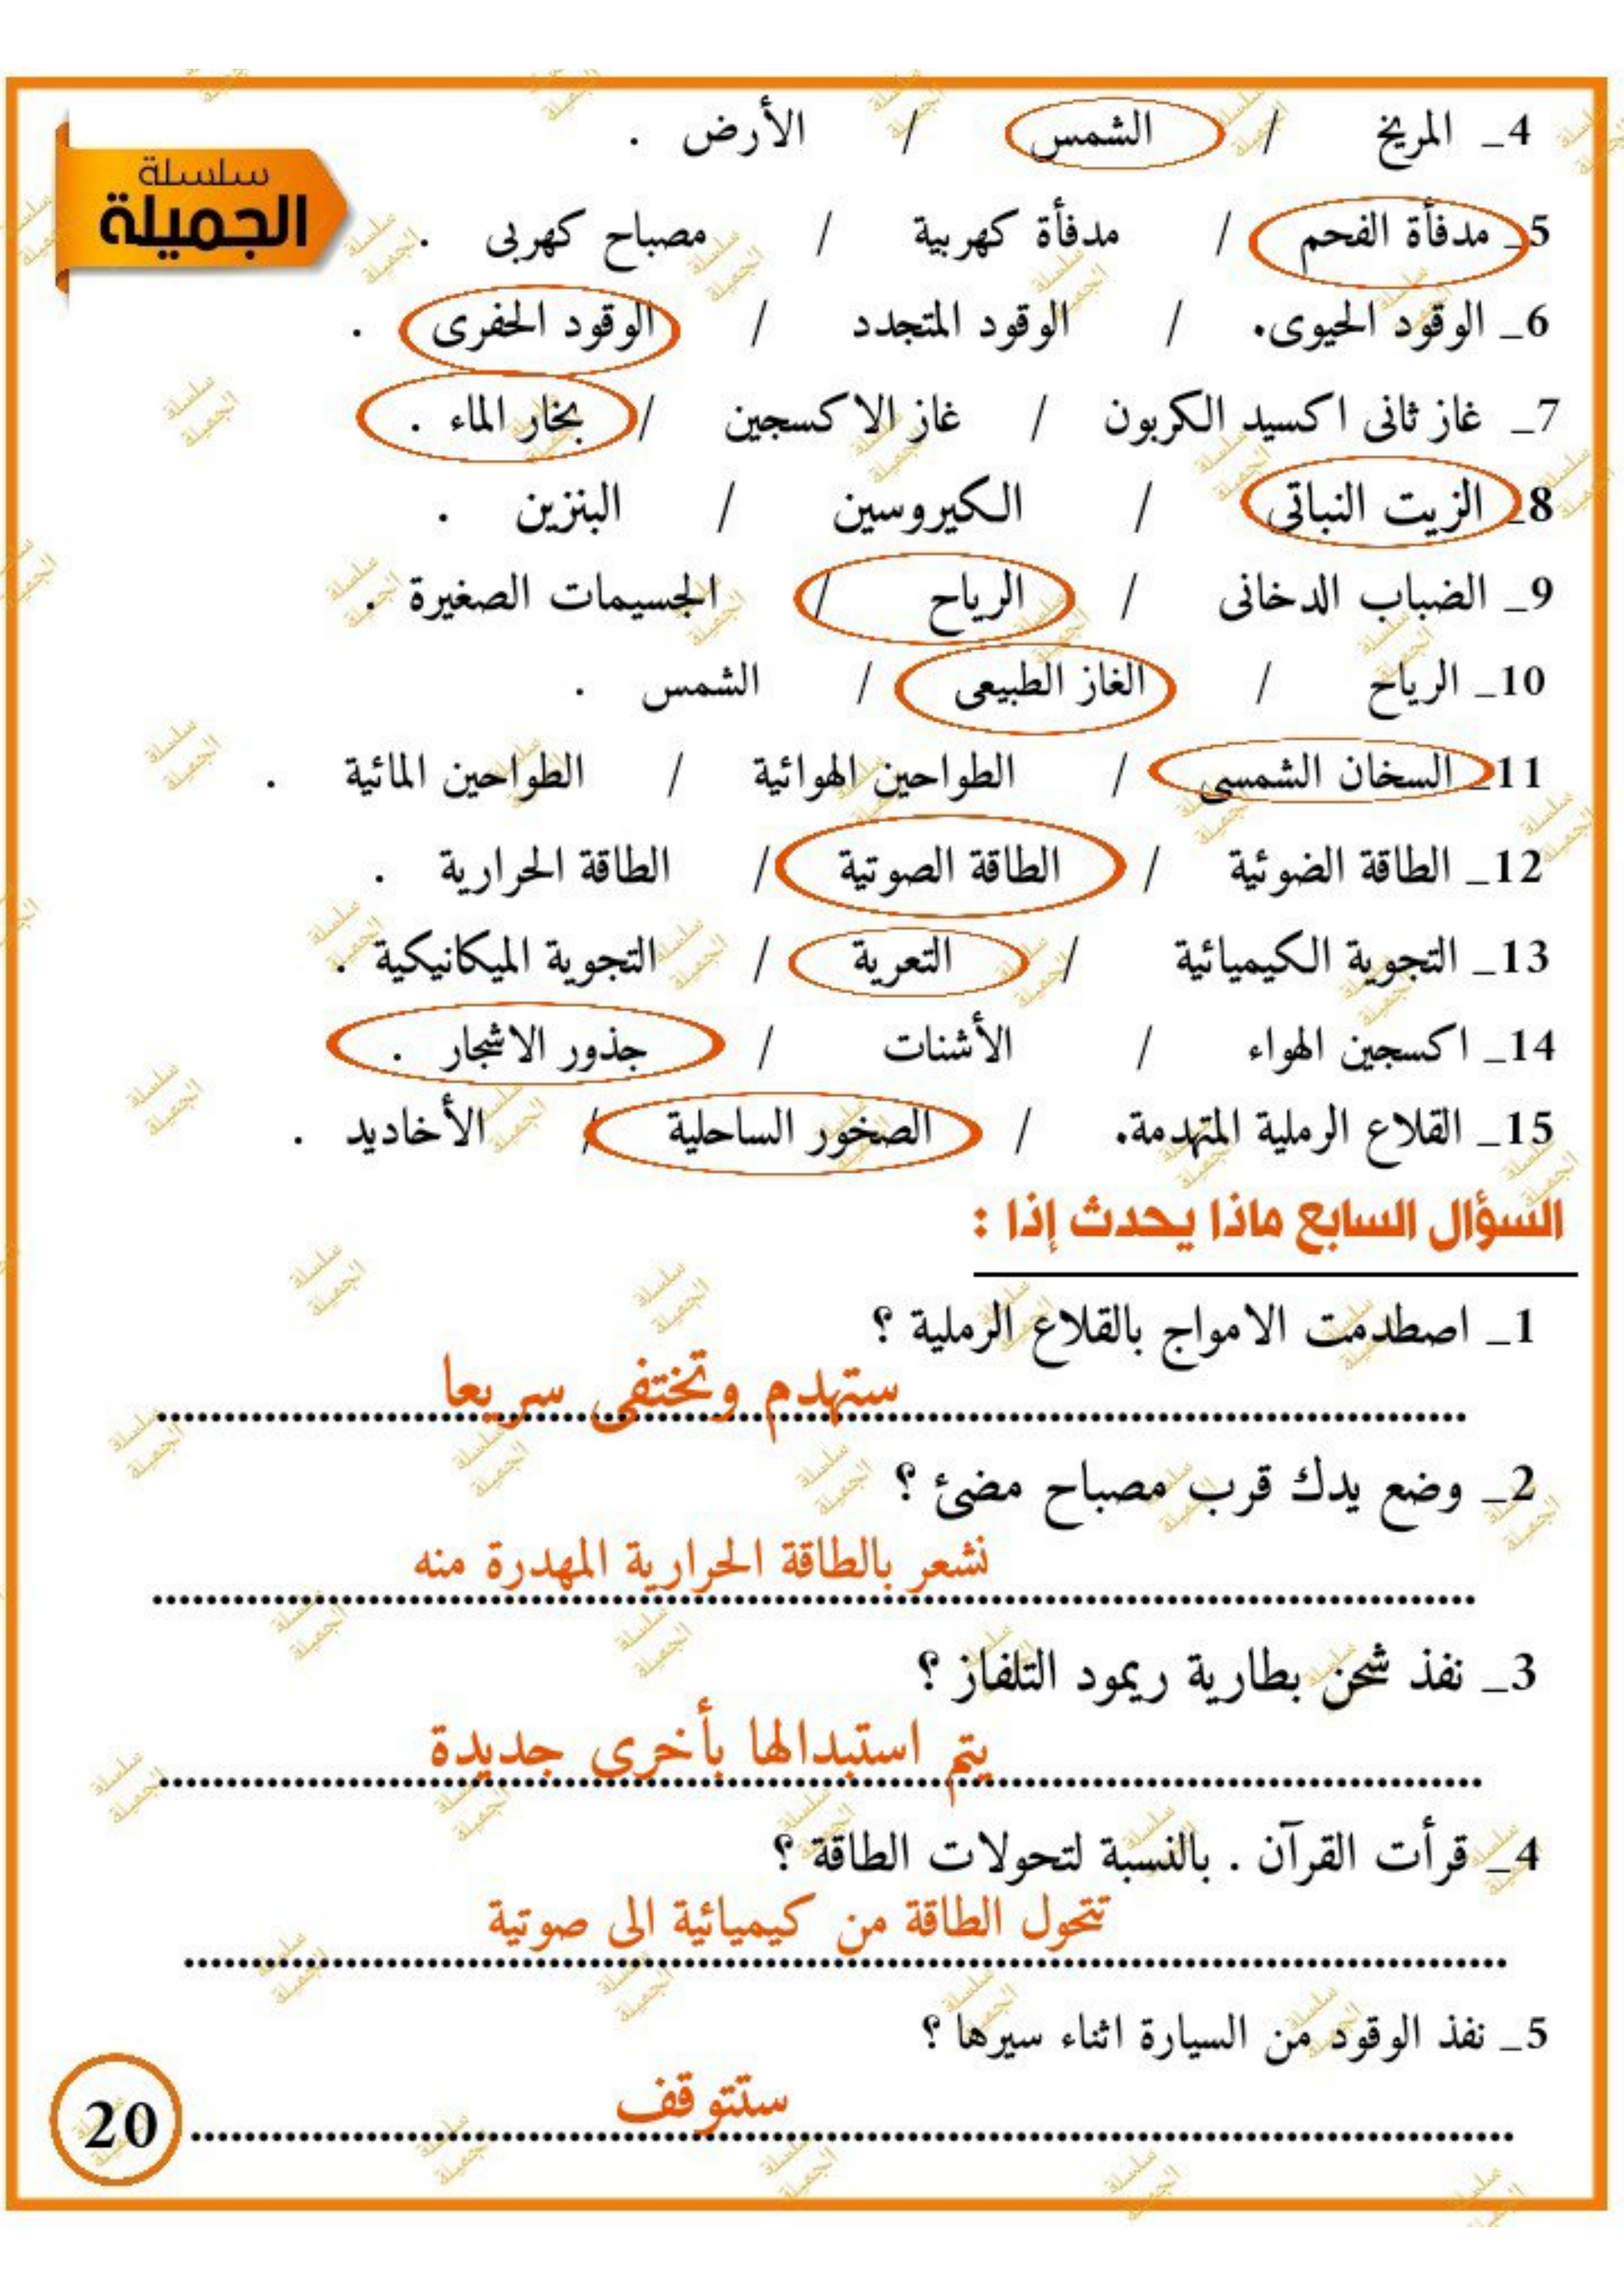 سلسلة
الجميلة
4_ المريخ / الشمس / الأرض .
5_ مدفأة الفحم / مدفأة كهربية / مصباح كهربى .
6_ الوقود الحيوى. / الوقود المتجدد / الوقود الحفرى .
7_ غاز ثانى اكسيد الكربون / غاز الاكسجين / بخار الماء .
8_ الزيت النباتى / الكيروسين / البنزين .
9_ الضباب الدخانى / الرياح / الجسيمات الصغيرة .
10_ الرياح / الغاز الطبيعى / الشمس .
11_ السخان الشمسى / الطواحين الهوائية / الطواحين المائية .
12_ الطاقة الضوئية / الطاقة الصوتية / الطاقة الحرارية .
13_ التجوية الكيميائية / التعرية / التجوية الميكانيكية .
14_ اكسجين الهواء / الأشنات / جذور الاشجار .
15_ القلاع الرملية المتهدمة. / الصخور الساحلية / الأخاديد .
السؤال السابع ماذا يحدث إذا :
1_ اصطدمت الامواج بالقلاع الرملية ؟
ستهدم وتختفى سريعا
2_ وضع يدك قرب مصباح مضئ ؟
نشعر بالطاقة الحرارية المهدرة منه
3_ نفذ شحن بطارية ريمود التلفاز ؟
يتم استبدالها بأخرى جديدة
4_ قرأت القرآن . بالنسبة لتحولات الطاقة ؟
تتحول الطاقة من كيميائية الى صوتية
5_ نفذ الوقود من السيارة اثناء سيرها ؟
ستتوقف
20